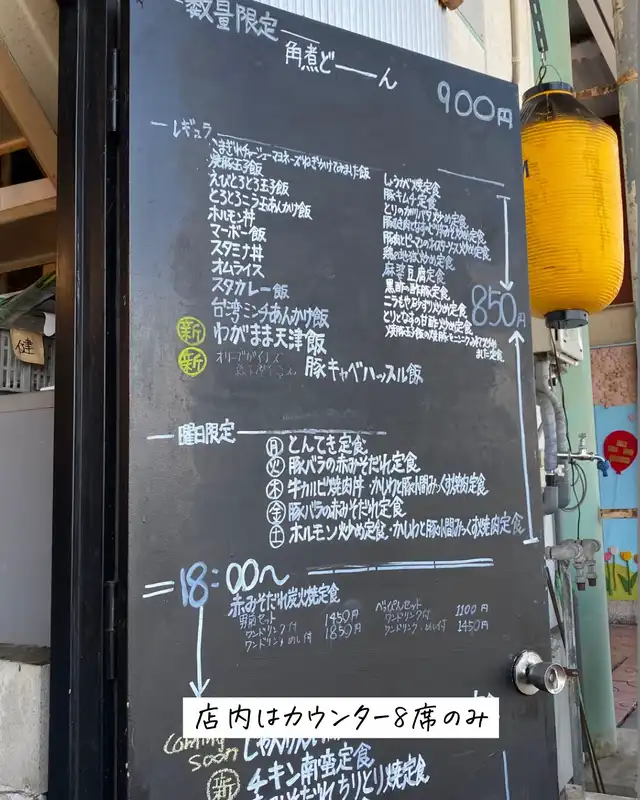 数量限定
角煮どーーん 900円
レギュラ
こまぎれチャーシューマヨネーズねぎかけてみました飯
焼豚玉子飯
えびとろとろ玉子飯
とろとろニラ玉あんかけ飯
ホルモン丼
マーボー飯
スタミナ丼
オムライス
スタカレー飯
台湾ミンチあんかけ飯
新 わがまま天津飯
新 豚キャベハッスル飯
しょうが焼定食
豚キムチ定食
とりのガリバタ炒め定食
麻婆豆腐定食
黒酢の酢豚定食
とりとなすの甘酢炒め定食
ました定食
850円
曜日限定
月 とんてき定食
火 豚バラの赤みそだれ定食
木 牛カルビ焼肉丼・かしわと豚小間みっくす焼肉定食
金 豚バラの赤みそだれ定食
土 ホルモン炒め定食・かしわと豚小間みっくす焼肉定食
18:00〜
赤みそだれ炭火焼定食
男前セット
ワンドリンク付 1450円
ワンドリンク・めし付 1850円
ワンドリンク付 1100円
ワンドリンク・めし付 1450円
店内はカウンター8席のみ
Coming Soon
新 チキン南蛮定食
健